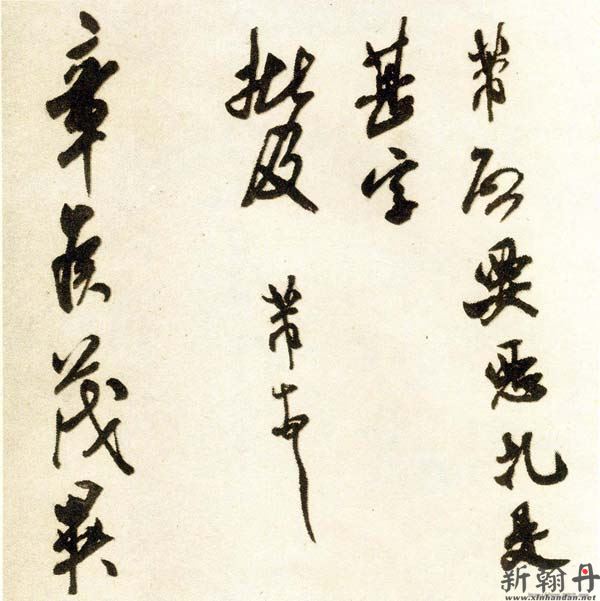 芾啓要惡札是
甚字
批及
芾
章侯茂異
新翰丹
www.xinhandan.net